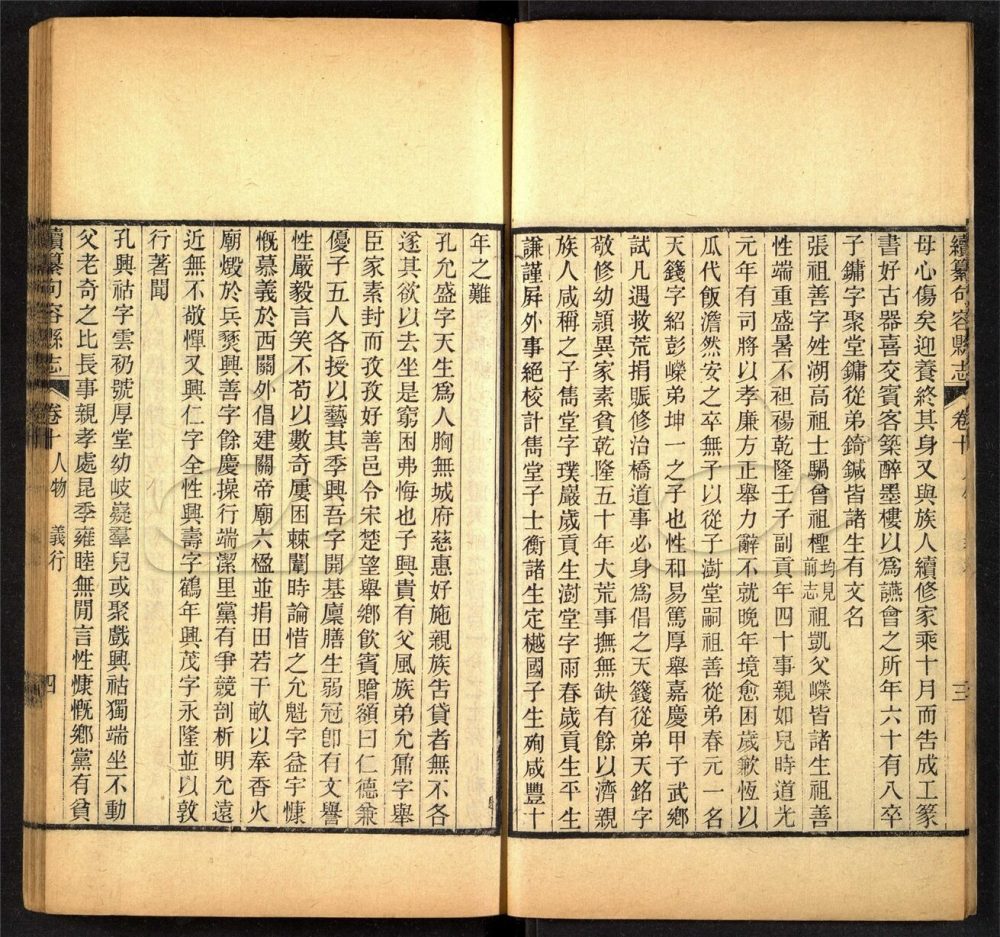 續纂句容縣志 卷十 三
母心傷矣迎養終其身又與族人續修家乘十月而告成工篆
書好古器喜交賓客築醉墨樓以爲讌會之所年六十有八卒
子鏞字聚堂鏞從弟錡鍼皆諸生有文名
張祖善字姓湖高祖士驌曾祖檉均見前志祖凱父嶸皆諸生祖善
性端重盛暑不袒裼乾隆壬子副貢年四十事親如兒時道光
元年有司將以孝廉方正舉力辭不就晚年境愈困歲歉恆以
瓜代飯澹然安之卒無子以從子澍堂嗣祖善從弟春元一名
天籛字紹彭嶸弟坤一之子也性和易篤厚舉嘉慶甲子武鄉
試凡遇救荒捐賑修治橋道事必身爲倡之天籛從弟天銘字
敬修幼穎異家素貧乾隆五十年大荒事撫無缺有餘以濟親
族人咸稱之子雋堂字璞巖歲貢生澍堂字雨春歲貢生平生
謙謹屛外事絕校計雋堂子士衡諸生定樾國子生殉咸豐十
年之難
孔允盛字天生爲人胸無城府慈惠好施親族告貸者無不各
遂其欲以去坐是窮困弗悔也子興貴有父風族弟允鼐字舉
臣家素封而孜孜好善邑令宋楚望舉鄉飲賓贈額曰仁德兼
優子五人各授以藝其季興吾字開基廩膳生弱冠卽有文譽
性嚴毅言笑不苟以數奇屢困棘闈時論惜之允魁字益宇慷
慨慕義於西關外倡建關帝廟六楹並捐田若干畝以奉香火
廟燬於兵燹興善字餘慶操行端潔里黨有爭競剖析明允遠
近無不敬憚又興仁字全性興壽字鶴年興茂字永隆並以敦
行著聞
孔興祜字雲礽號厚堂幼岐嶷羣兒或聚戲興祜獨端坐不動
父老奇之比長事親孝處昆季雍睦無閒言性慷慨鄉黨有貧
續纂句容縣志 卷十 人物 義行 四